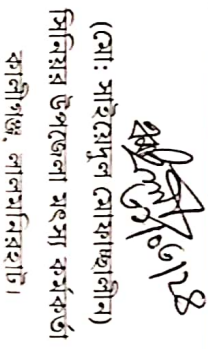 (মো: সাইয়েদুল মোফাচ্ছালীন)
সিনিয়র উপজেলা মৎস্য কর্মকর্তা
কালীগঞ্জ, লালমনিরহাট।